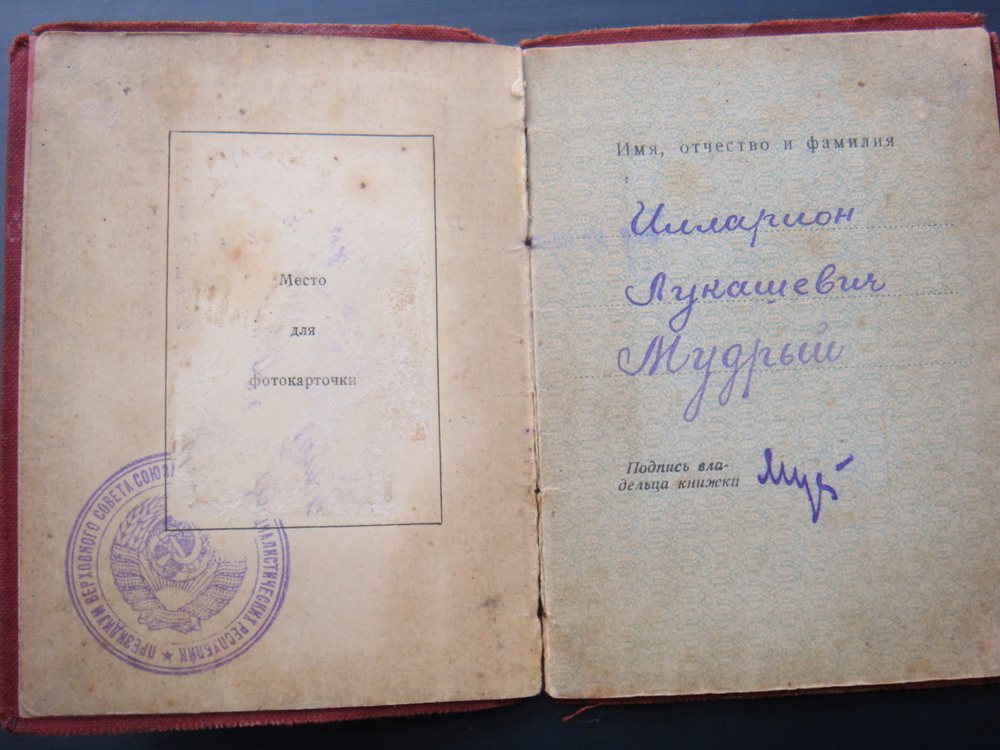 Место
для
фотокарточки
ПРЕЗИДИУМ ВЕРХОВНОГО СОВЕТА СОЮЗА АЛИСТИЧЕСКИХ РЕСПУБЛИК ★
Имя, отчество и фамилия
Илларион
Лукашевич
Мудрый
Подпись вла-
дельца книжки